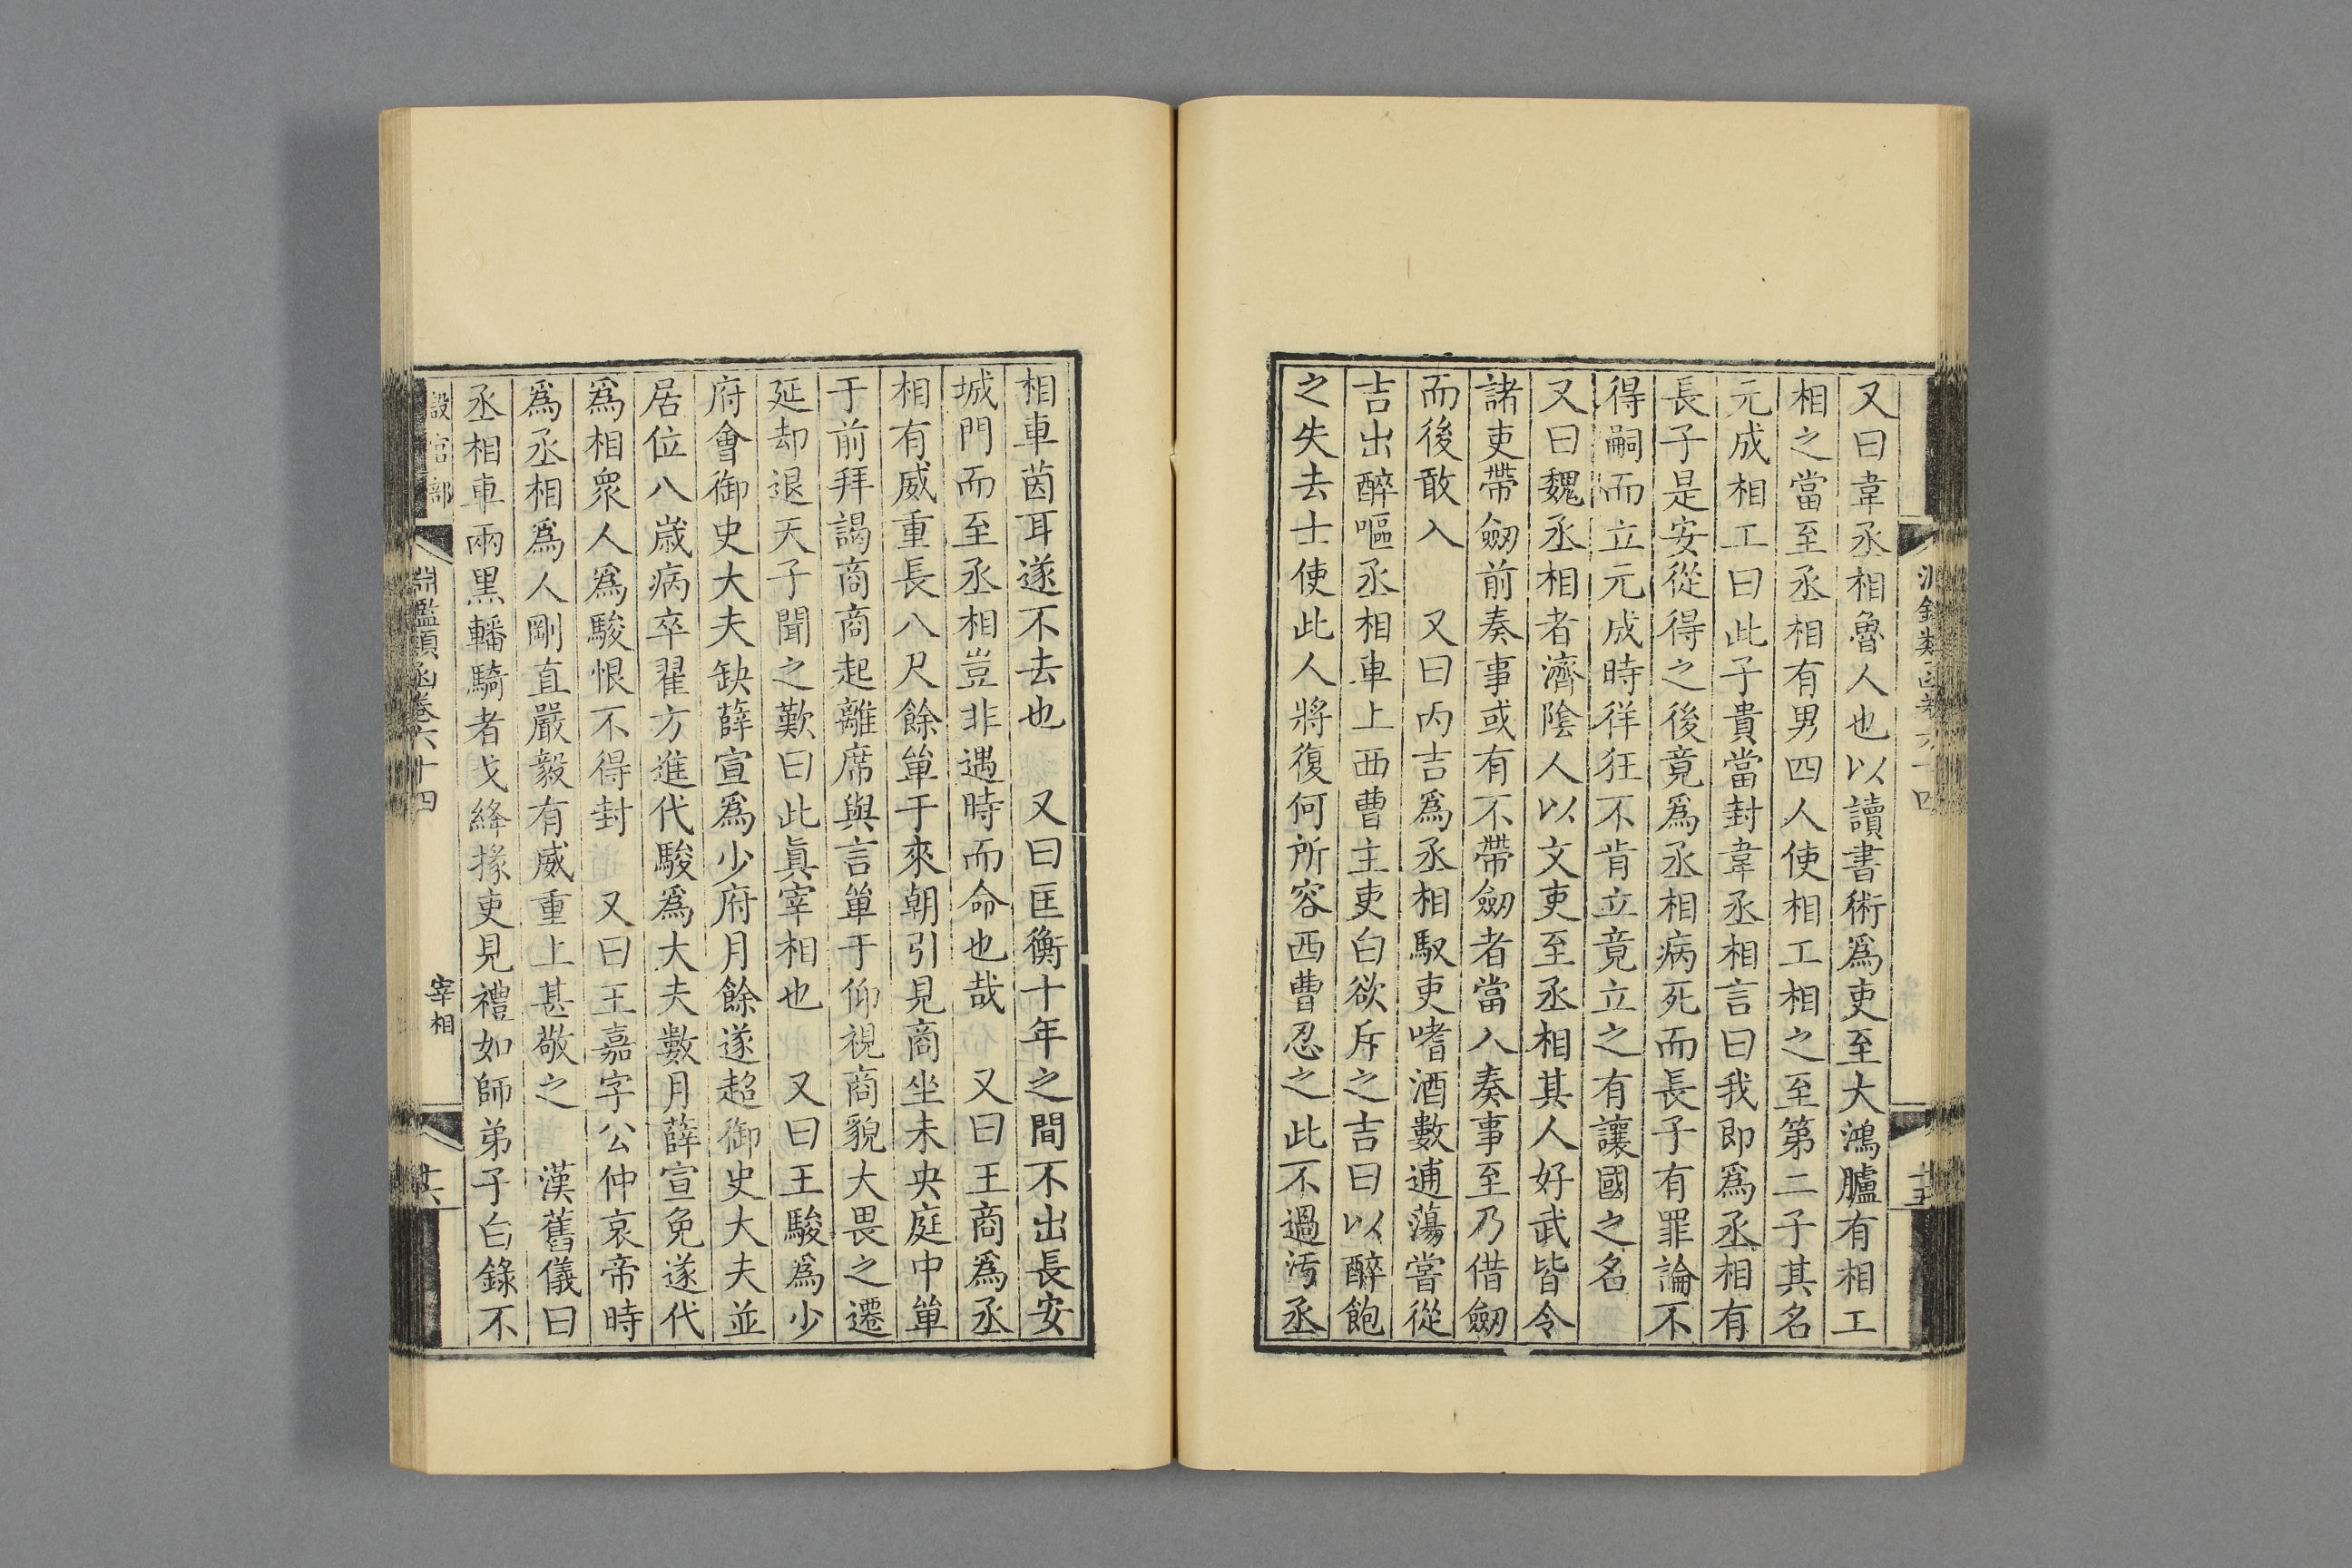 又曰韋丞相魯人也以讀書術爲吏至大鴻臚有相工
相之當至丞相有男四人使相工相之至第二子其名
元成相工曰此子貴當封韋丞相言曰我即爲丞相有
長子是安從得之後竟爲丞相病死而長子有罪論不
得嗣而立元成時徉狂不肯立竟立之有讓國之名
又曰魏丞相者濟隂人以文吏至丞相其人好武皆令
諸吏帶劒前奏事或有不帶劒者當入奏事至乃借劒
而後敢入 又曰丙吉爲丞相馭吏嗜酒數逋蕩嘗從
吉出醉嘔丞相車上西曹主吏白欲斥之吉曰以醉飽
之失去士使此人將復何所容西曹忍之此不過汚丞
相車茵耳遂不去也 又曰匡衡十年之間不出長安
城門而至丞相豈非遇時而命也哉 又曰王商爲丞
相有威重長八尺餘單于來朝引見商坐未央庭中單
于前拜謁商商起離席與言單于仰視商貌大畏之遷
延却退天子聞之歎曰此眞宰相也 又曰王駿爲少
府會御史大夫缺薛宣爲少府月餘遂超御史大夫並
居位八歲病卒翟方進代駿爲大夫數月薛宣免遂代
爲相衆人爲駿恨不得封 又曰王嘉字公仲哀帝時
爲丞相爲人剛直嚴毅有威重上甚敬之 漢舊儀曰
丞相車兩黑轓騎者戈絳掾吏見禮如師弟子白錄不
設官部 淵鑑類函卷六十四 宰相 廿六